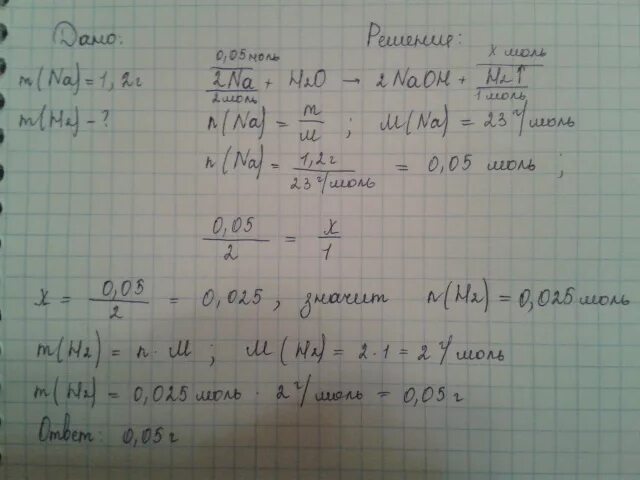 Дано: Решение:
0,05 моль x моль
m(Na)=1,2г 2Na + H2O → 2NaOH + H2↑
2 моль 1 моль
m(H2)-? n(Na) = m/M ; M(Na) = 23 г/моль
n(Na) = 1,2г / 23 г/моль = 0,05 моль ;
0,05/2 = x/1
x = 0,05/2 = 0,025 , значит n(H2) = 0,025 моль
m(H2) = n · M ; M(H2) = 2·1 = 2 г/моль
m(H2) = 0,025 моль · 2 г/моль = 0,05 г
Ответ: 0,05 г